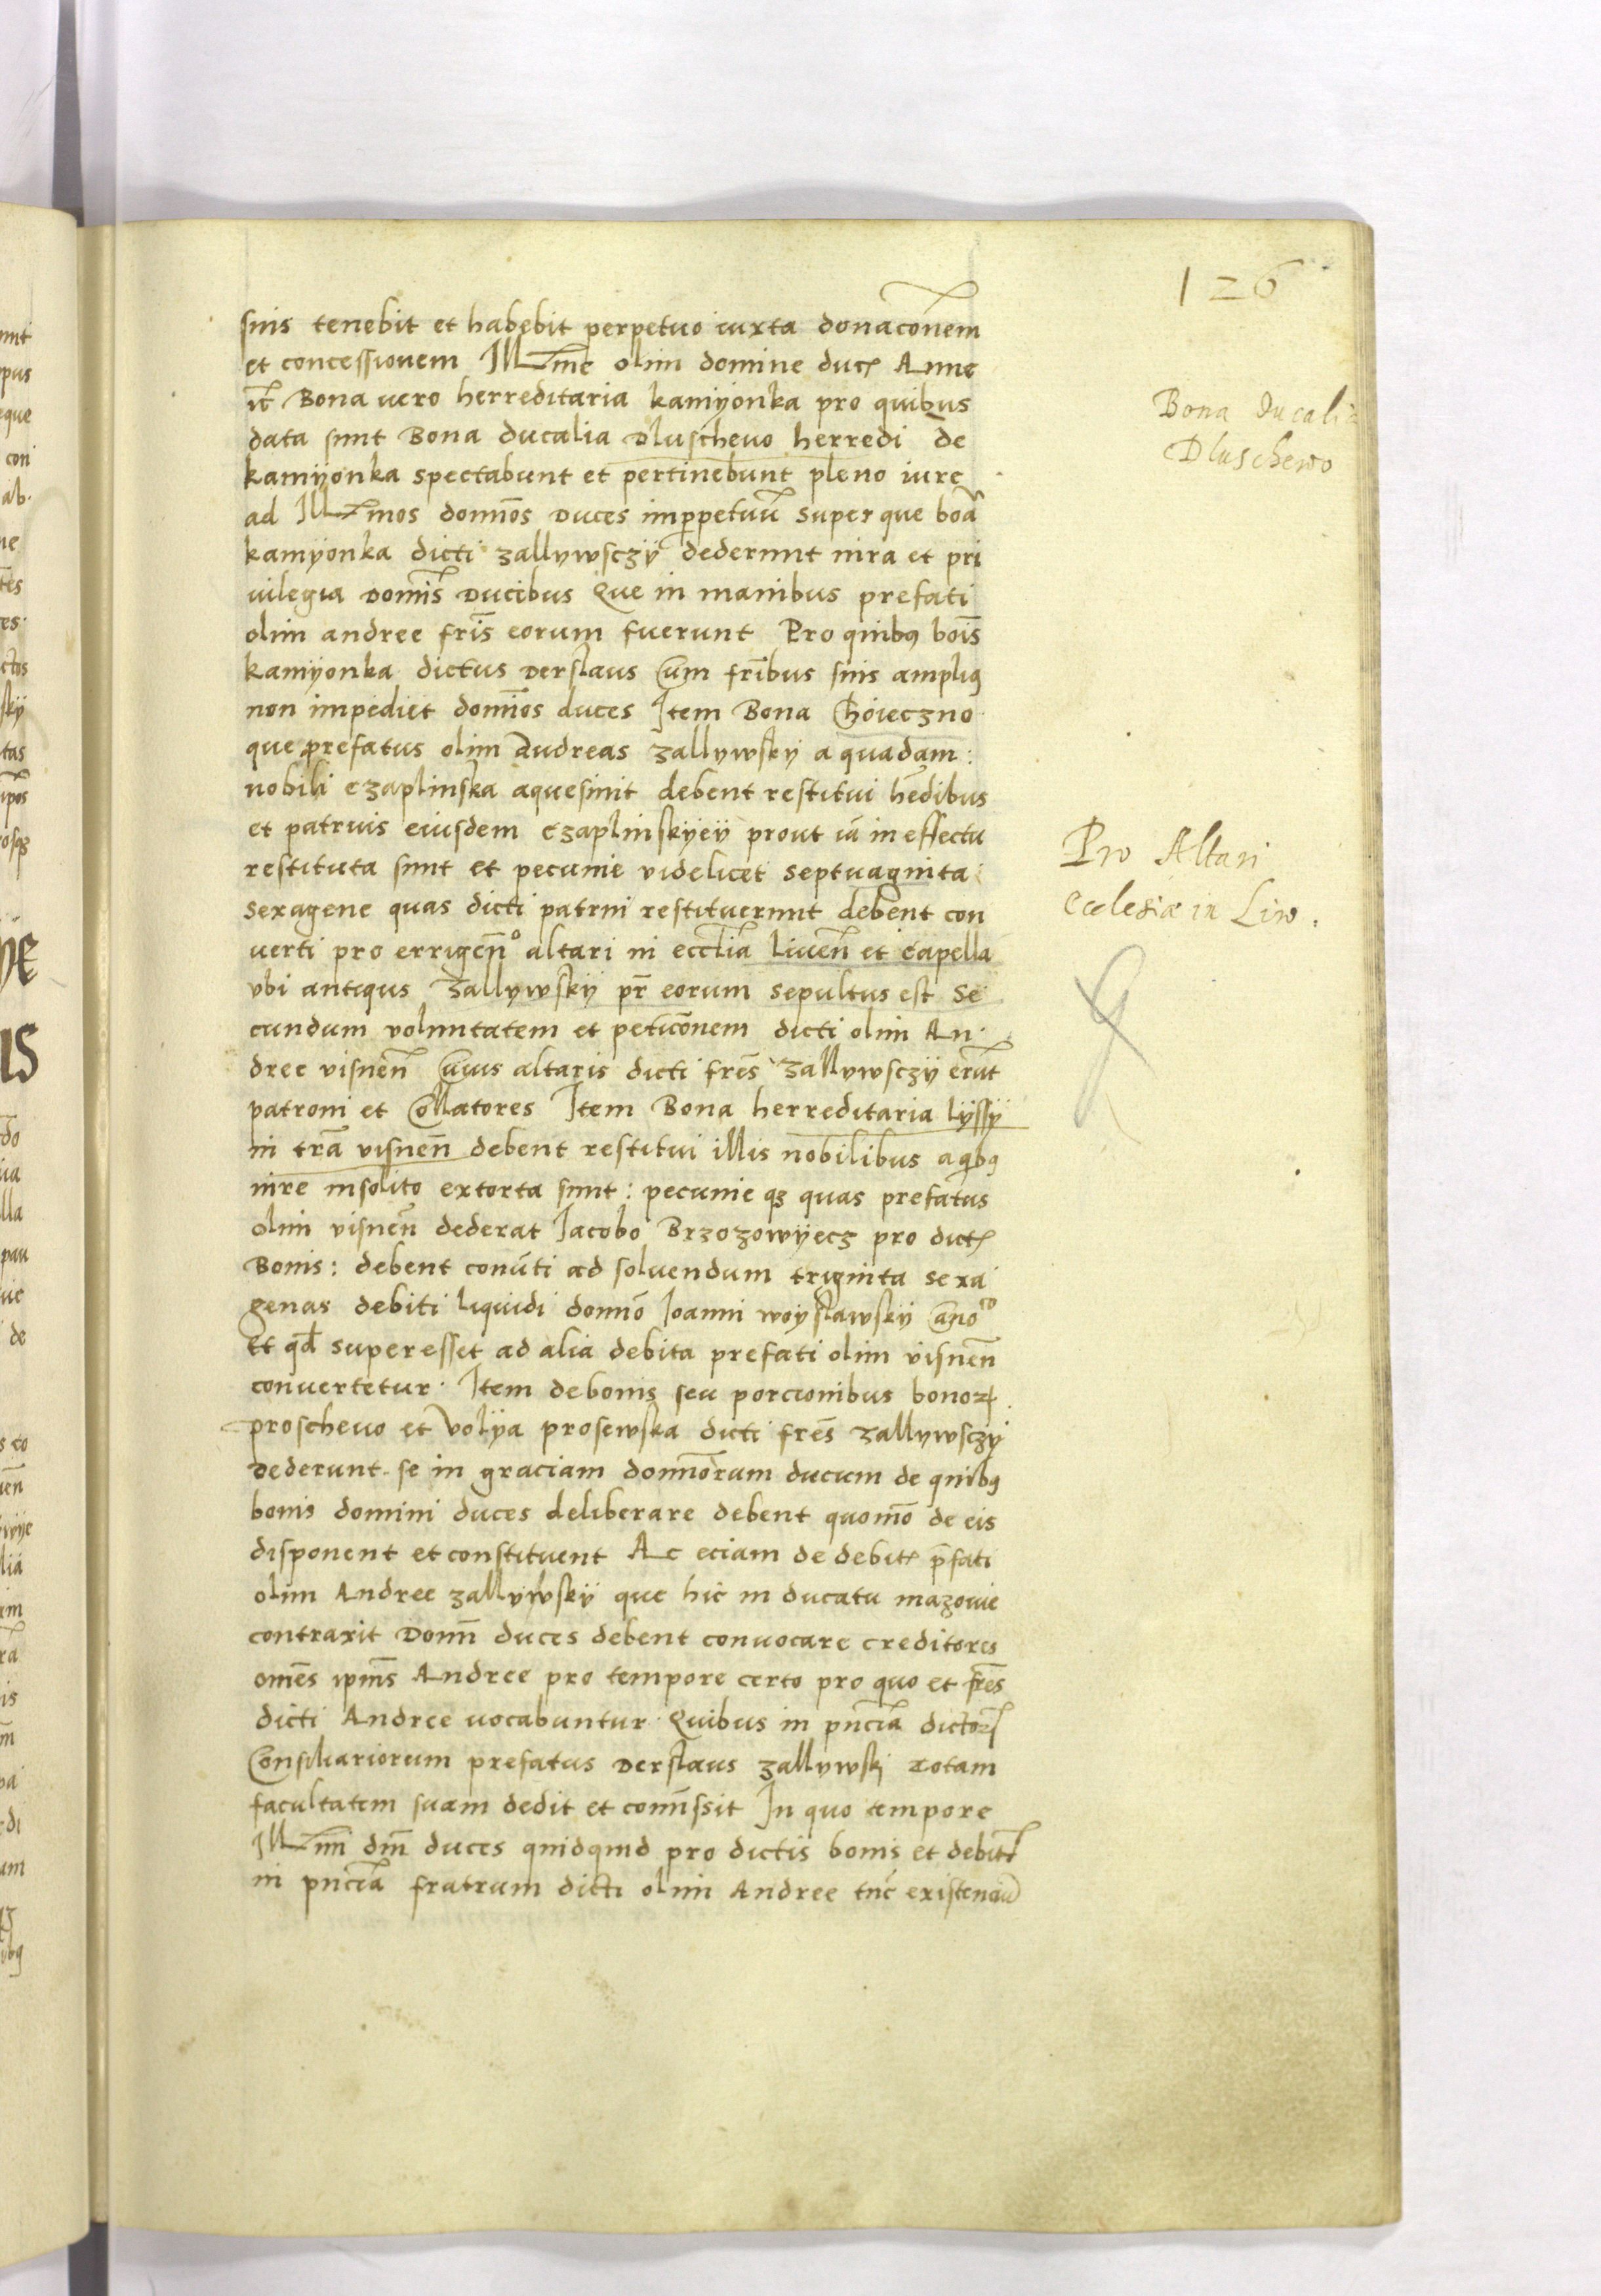 126
suis tenebit et habebit perpetuo iuxta donacōnem
et concessionem Illme olim domine duc Anne
it Bona vero herreditaria kamÿonka pro quibus
data sunt Bona ducalia Dluschevo herredi de
kamÿonka spectabunt et pertinebunt pleno iure
ad Illmos domīos duces imppetuū super que boā
kamÿonka dicti zallywsczÿ dederunt iura et pri
uilegia Domīs Ducibus Que in manibus prefati
olim andree fr̄is eorum fuerunt Pro quibꝯ boīs
kamyonka dictus Derslaus Cum fr̄ibus suis ampliꝯ
non impediet domīos duces Item Bona Choieczno
que prefatus olim Andreas zallywskÿ a quadam:
nobili czaplinska aquesiuit debent restitui hēdibus
et patruis eiusdem czaplinskÿeÿ prout iā in effectu
restituta sunt et pecunie videlicet septuaginta
sexagene quas dicti patrui restituerunt debent con
uerti pro errigēn° altari in eccl̄ia liuen̄ et Capella
vbi antiqus Zallywskÿ pr̄ eorum sepultus est Se
cundum voluntatem et peticōnem dicti olim An
dree visnen̄ Cuius altaris dicti fr̄es zallywsczÿ erūt
patroni et Collatores Item Bona herreditaria lÿssÿ
in tr̄a visnen̄ debent restitui illis nobilibus a qibꝯ
iure insolito extorta sunt: pecunie qꝫ quas prefatus
olim visnen̄ dederat Iacobo Brzozowÿecz pro dict
Bonis: debent conūti ad soluendum triginta sexa
genas debiti liquidi domīo Ioanni woyslawskÿ
et qd̄ superesset ad alia debita prefati olim visnen̄
conuertetur. Item de bonis seu porcionibus bonoꝝ
proschevo et Volÿa prosewska dicti fr̄es zallywsczÿ
Dederunt se in graciam domīorum ducum de quibꝯ
bonis domini duces deliberare debent quomō de eis
disponent et constituent Ac eciam de debit p̄fati
olim Andree zallywskÿ que hic in ducatu mazouie
contraxit Domī duces debent conuocare creditores
om̄es ipīus Andree pro tempore certo pro quo et fr̄es
dicti Andree uocabuntur Quibus in pn̄cia dictoꝝ
Consiliariorum prefatus Derslaus zallywski totam
facultatem suam dedit et com̄issit In quo tempore
Illmi dn̄i duces quidquid pro dictis bonis et debit
in pn̄cia fratrum dicti olim Andree tūc existenciū
Bona Ducalia
Dluschewo
Pro Altari
Ecclesiæ in Liw.